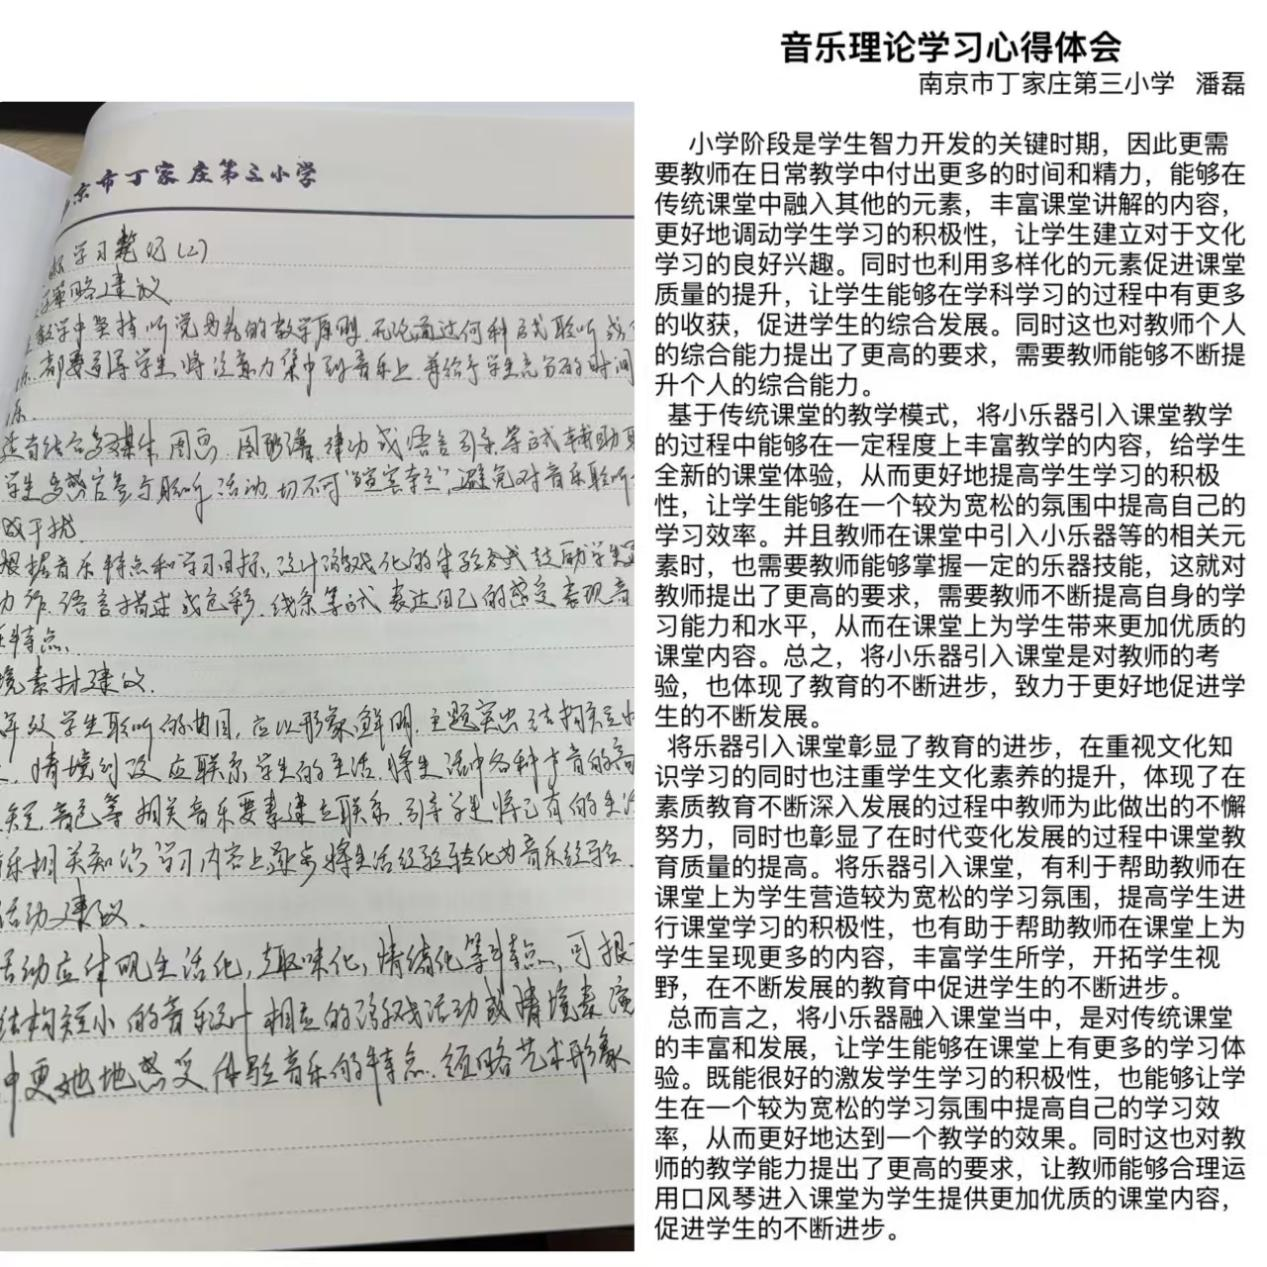 京市丁家庄第三小学
学习笔记(2)
策略建议
教学中坚持听觉为先的教学原则,无论通过何种方式聆听或
都要引导学生将注意力集中到音乐上,并给予学生充分的时间
乐.
适当结合多媒体、图画、图形谱、律动或语言引导等方式辅助
学生多感官参与聆听活动,切不可“喧宾夺主”,避免对音乐聆听
成干扰.
根据音乐特点和学习目标,设计游戏化的体验方式鼓励学生
动作、语言描述或色彩、线条等方式表达自己的感受表现音
特点.
境素材建议.
年级学生聆听的曲目,应以形象鲜明、主题突出、结构短小
情境创设应联系学生的生活,将生活中各种声音的高
短、音色等相关音乐要素建立联系,引导学生将已有的生活
乐相关知识学习内容上,逐步将生活经验转化为音乐经验.
活动建议.
活动应体现生活化,趣味化,情绪化等特点,可根
结构短小的音乐设计相应的游戏活动或情境表演
中更好地感受、体验音乐的特点.领略艺术形象
音乐理论学习心得体会
南京市丁家庄第三小学 潘磊
小学阶段是学生智力开发的关键时期，因此更需
要教师在日常教学中付出更多的时间和精力，能够在
传统课堂中融入其他的元素，丰富课堂讲解的内容，
更好地调动学生学习的积极性，让学生建立对于文化
学习的良好兴趣。同时也利用多样化的元素促进课堂
质量的提升，让学生能够在学科学习的过程中有更多
的收获，促进学生的综合发展。同时这也对教师个人
的综合能力提出了更高的要求，需要教师能够不断提
升个人的综合能力。
基于传统课堂的教学模式，将小乐器引入课堂教学
的过程中能够在一定程度上丰富教学的内容，给学生
全新的课堂体验，从而更好地提高学生学习的积极
性，让学生能够在一个较为宽松的氛围中提高自己的
学习效率。并且教师在课堂中引入小乐器等的相关元
素时，也需要教师能够掌握一定的乐器技能，这就对
教师提出了更高的要求，需要教师不断提高自身的学
习能力和水平，从而在课堂上为学生带来更加优质的
课堂内容。总之，将小乐器引入课堂是对教师的考
验，也体现了教育的不断进步，致力于更好地促进学
生的不断发展。
将乐器引入课堂彰显了教育的进步，在重视文化知
识学习的同时也注重学生文化素养的提升，体现了在
素质教育不断深入发展的过程中教师为此做出的不懈
努力，同时也彰显了在时代变化发展的过程中课堂教
育质量的提高。将乐器引入课堂，有利于帮助教师在
课堂上为学生营造较为宽松的学习氛围，提高学生进
行课堂学习的积极性，也有助于帮助教师在课堂上为
学生呈现更多的内容，丰富学生所学，开拓学生视
野，在不断发展的教育中促进学生的不断进步。
总而言之，将小乐器融入课堂当中，是对传统课堂
的丰富和发展，让学生能够在课堂上有更多的学习体
验。既能很好的激发学生学习的积极性，也能够让学
生在一个较为宽松的学习氛围中提高自己的学习效
率，从而更好地达到一个教学的效果。同时这也对教
师的教学能力提出了更高的要求，让教师能够合理运
用口风琴进入课堂为学生提供更加优质的课堂内容，
促进学生的不断进步。